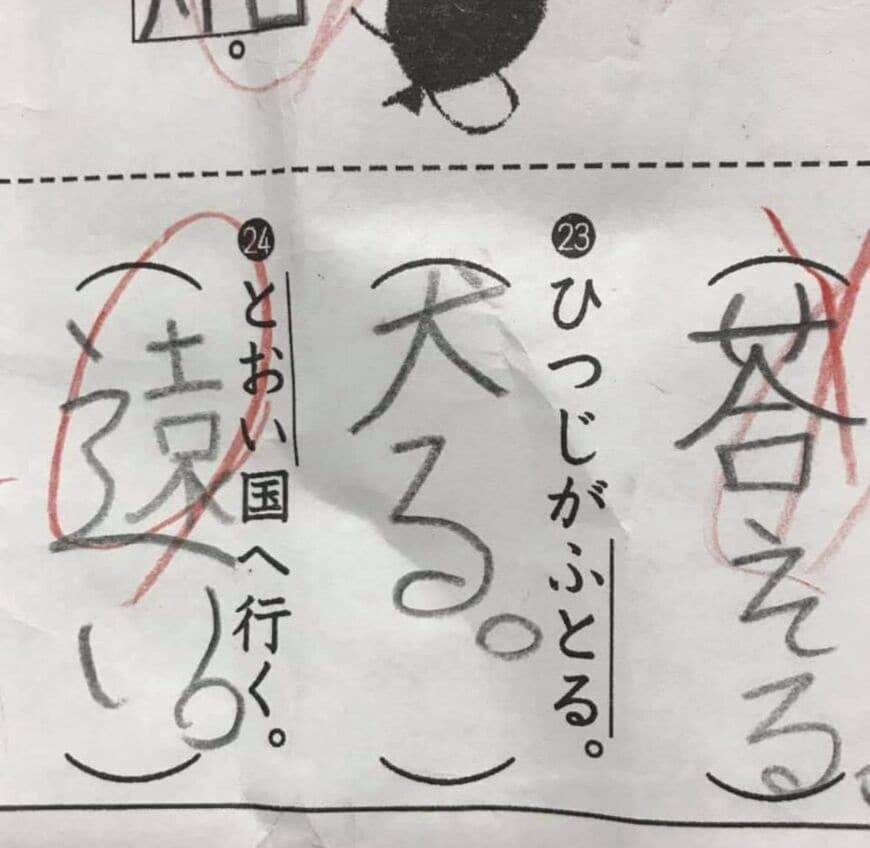 答える。
㉓ひつじがふとる。
(犬る。)
㉔とおい国へ行く。
(遠い。)